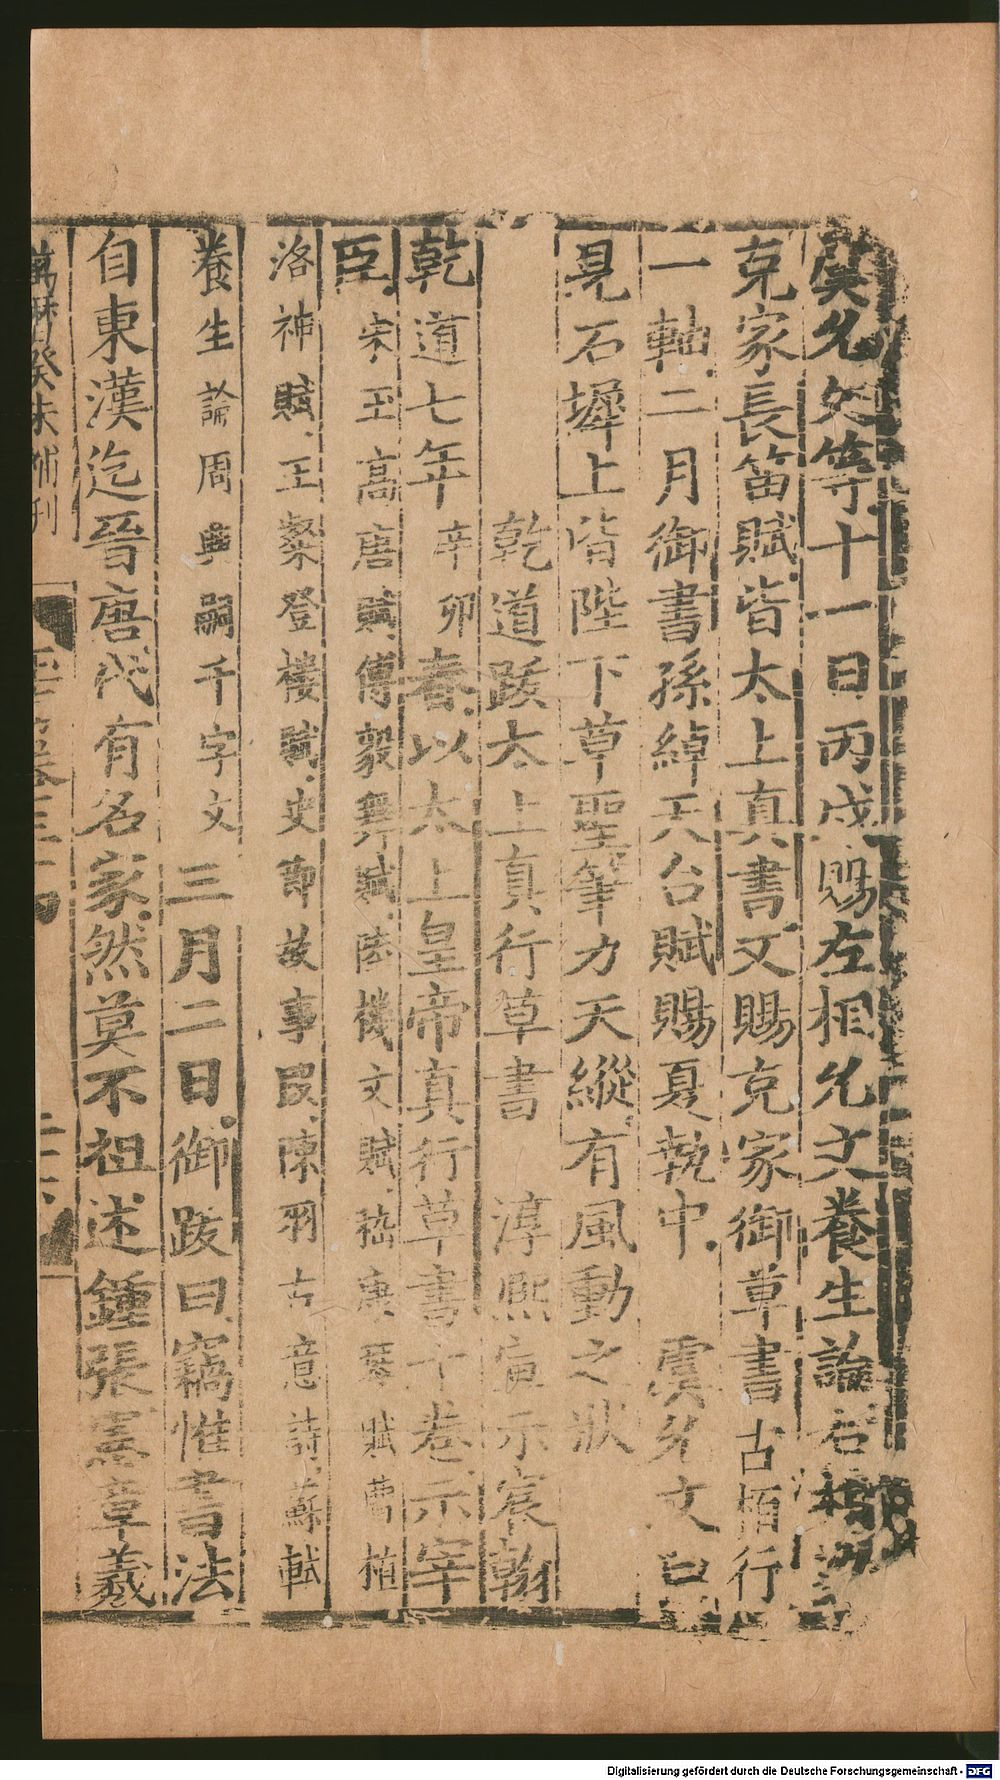 矣允文等十一日丙戌賜左相允文養生論右相
克家長笛賦皆太上真書又賜克家御草書古栢行
一軸二月御書孫綽天台賦賜夏執中 虞允文曰
見石墀上皆陛下草聖筆力天縱有風動之狀
乾道跋太上真行草書 淳熙宣示宸翰
乾道七年辛卯春以太上皇帝真行草書十卷示宰
臣宋玉高唐賦傅毅舞賦陸機文賦嵇康琴賦曹植
洛神賦王粲登樓賦史節故事民陳羽古意詩蘇軾
養生論周興嗣千字文 三月二日御跋曰竊惟書法
自東漢迄晉唐代有名家然莫不祖述鍾張憲章羲
萬曆癸未補刊
玉海卷三十四
Digitalisierung gefördert durch die Deutsche Forschungsgemeinschaft - DFG